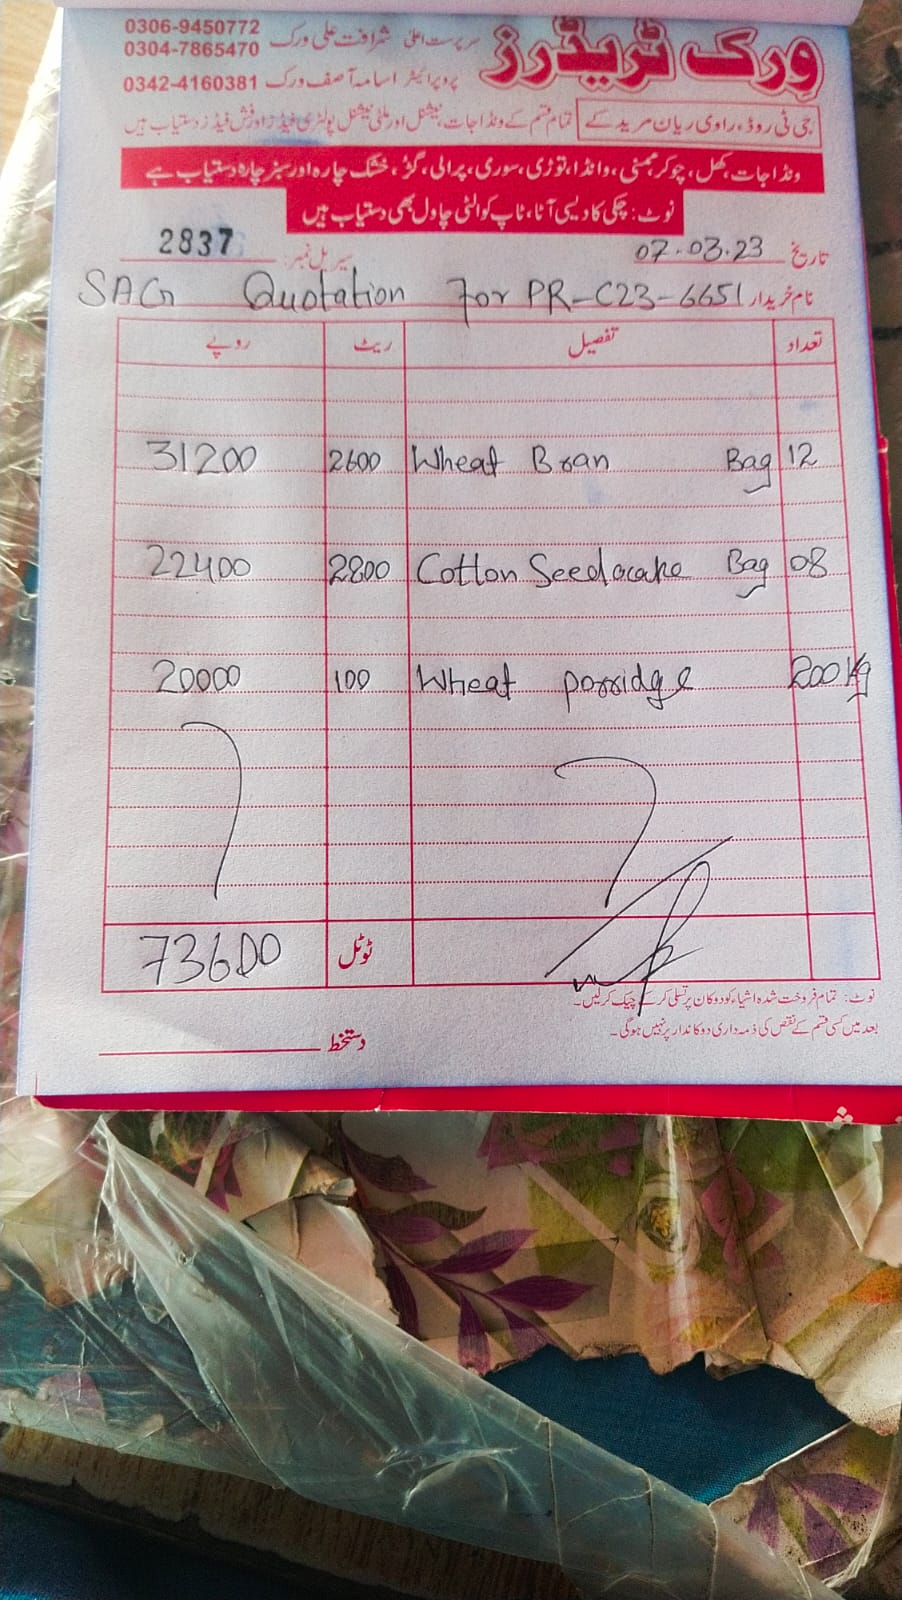 ورک ٹریڈرز
0306-9450772
سرپرست اعلیٰ شرافت علی ورک 0304-7865470
پروپرائیٹر اسامہ آصف ورک 0342-4160381
جی ٹی روڈ، راوی ریان مرید کے
تمام قسم کے ونڈا جات، نیشنل اور ملٹی نیشنل پولٹری فیڈز اور فش فیڈز دستیاب ہیں
ونڈا جات، کھل، چوکر، ممنی، وانڈا، توڑی، سوری، پرالی، گڑ، خشک چارہ اور سبز چارہ دستیاب ہے
نوٹ: چکی کا دیسی آٹا، ٹاپ کوالٹی چاول بھی دستیاب ہیں
تاریخ 07.03.23 سیریل نمبر: 2837
نام خریدار SAG Quotation For PR-C23-6651
تعداد تفصیل ریٹ روپے
31200 2600 Wheat Bran Bag 12
22400 2800 Cotton Seedacake Bag 08
20000 100 Wheat porridge 200 Kg
ٹوٹل 73600
نوٹ: تمام فروخت شدہ اشیاء کو دوکان پر تسلی کر کے چیک کر لیں۔
بعد میں کسی قسم کے نقص کی ذمہ داری دوکاندار پر نہیں ہوگی۔
دستخط